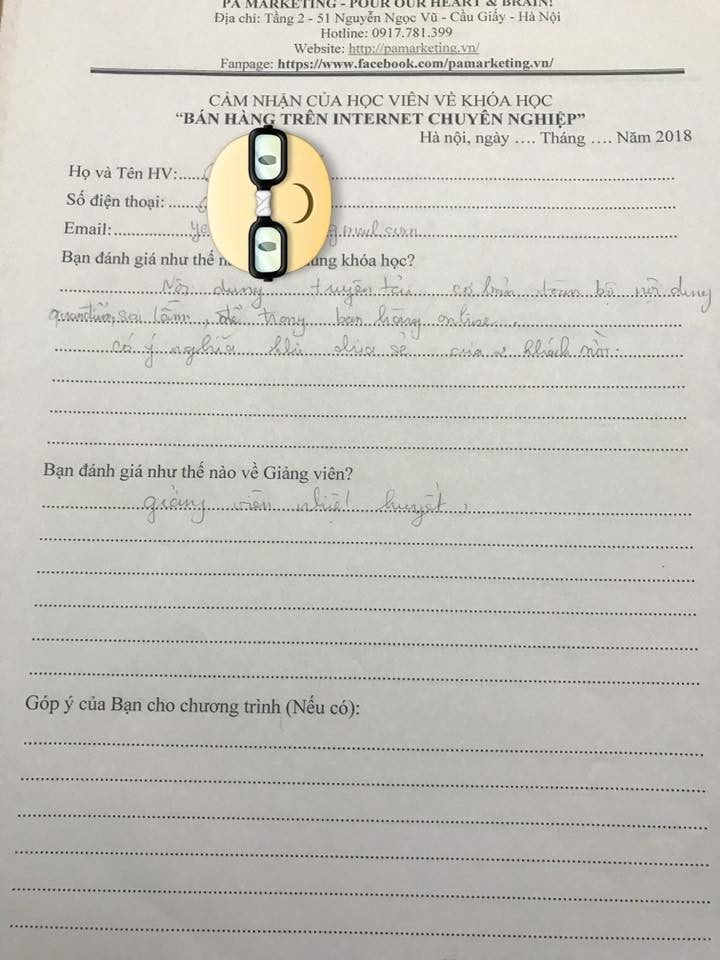 PA MARKETING - POUR OUR HEART & BRAIN!
Địa chỉ: Tầng 2 - 51 Nguyễn Ngọc Vũ - Cầu Giấy - Hà Nội
Hotline: 0917.781.399
Website: http://pamarketing.vn/
Fanpage: https://www.facebook.com/pamarketing.vn/
CẢM NHẬN CỦA HỌC VIÊN VỀ KHÓA HỌC
“BÁN HÀNG TRÊN INTERNET CHUYÊN NGHIỆP”
Hà nội, ngày .... Tháng .... Năm 2018
Họ và Tên HV:
Số điện thoại:
Email:
Bạn đánh giá như thế dung khóa học?
Nội dung truyền tải cơ bản toàn bộ nội dung
sai lầm, để trong bán hàng online.
có ý nghĩa khi chia sẻ của khách mời.
Bạn đánh giá như thế nào về Giảng viên?
giảng viên nhiệt huyết,
Góp ý của Bạn cho chương trình (Nếu có):